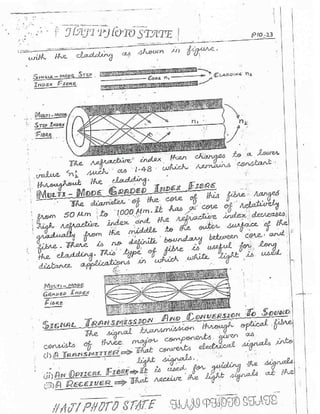 HAJI PHOTO STATE
P10-33
with the cladding as shown in figure.
SINGLE-MODE STEP
INDEX FIBRE
CORE n₁
CLADDING n₂
MULTI-MODE
STEP INDEX
FIBRE
n₁
n₂
The refractive index then changes to a lower
value 'n₂' such as 1.48 which remains constant
throughout the cladding.
MULTI-MODE GRADED INDEX FIBRE
The diameter of the core of this fibre ranges
from 50 μm to 1000 μm. It has a core of relatively
high refractive index and the refractive index decreases
gradually from the middle to the outer surface of the
fibre. There is no definite boundary between core and
the cladding. This type of fibre is useful for long
distance applications in which white light is used.
MULTI-MODE
GRADED INDEX
FIBRE
SIGNAL TRANSMISSION AND CONVERSION TO SOUND
The signal transmission through optical fibre
consists of three major components given as
(1) A TRANSMITTER ⇒ That converts electrical signals into
light signals.
(2) AN OPTICAL FIBRE ⇒ It is used for guiding the signals
(3) A RECEIVER ⇒ That receive the light signals at the
HAJI PHOTO STATE HAJI PHOTO STATE